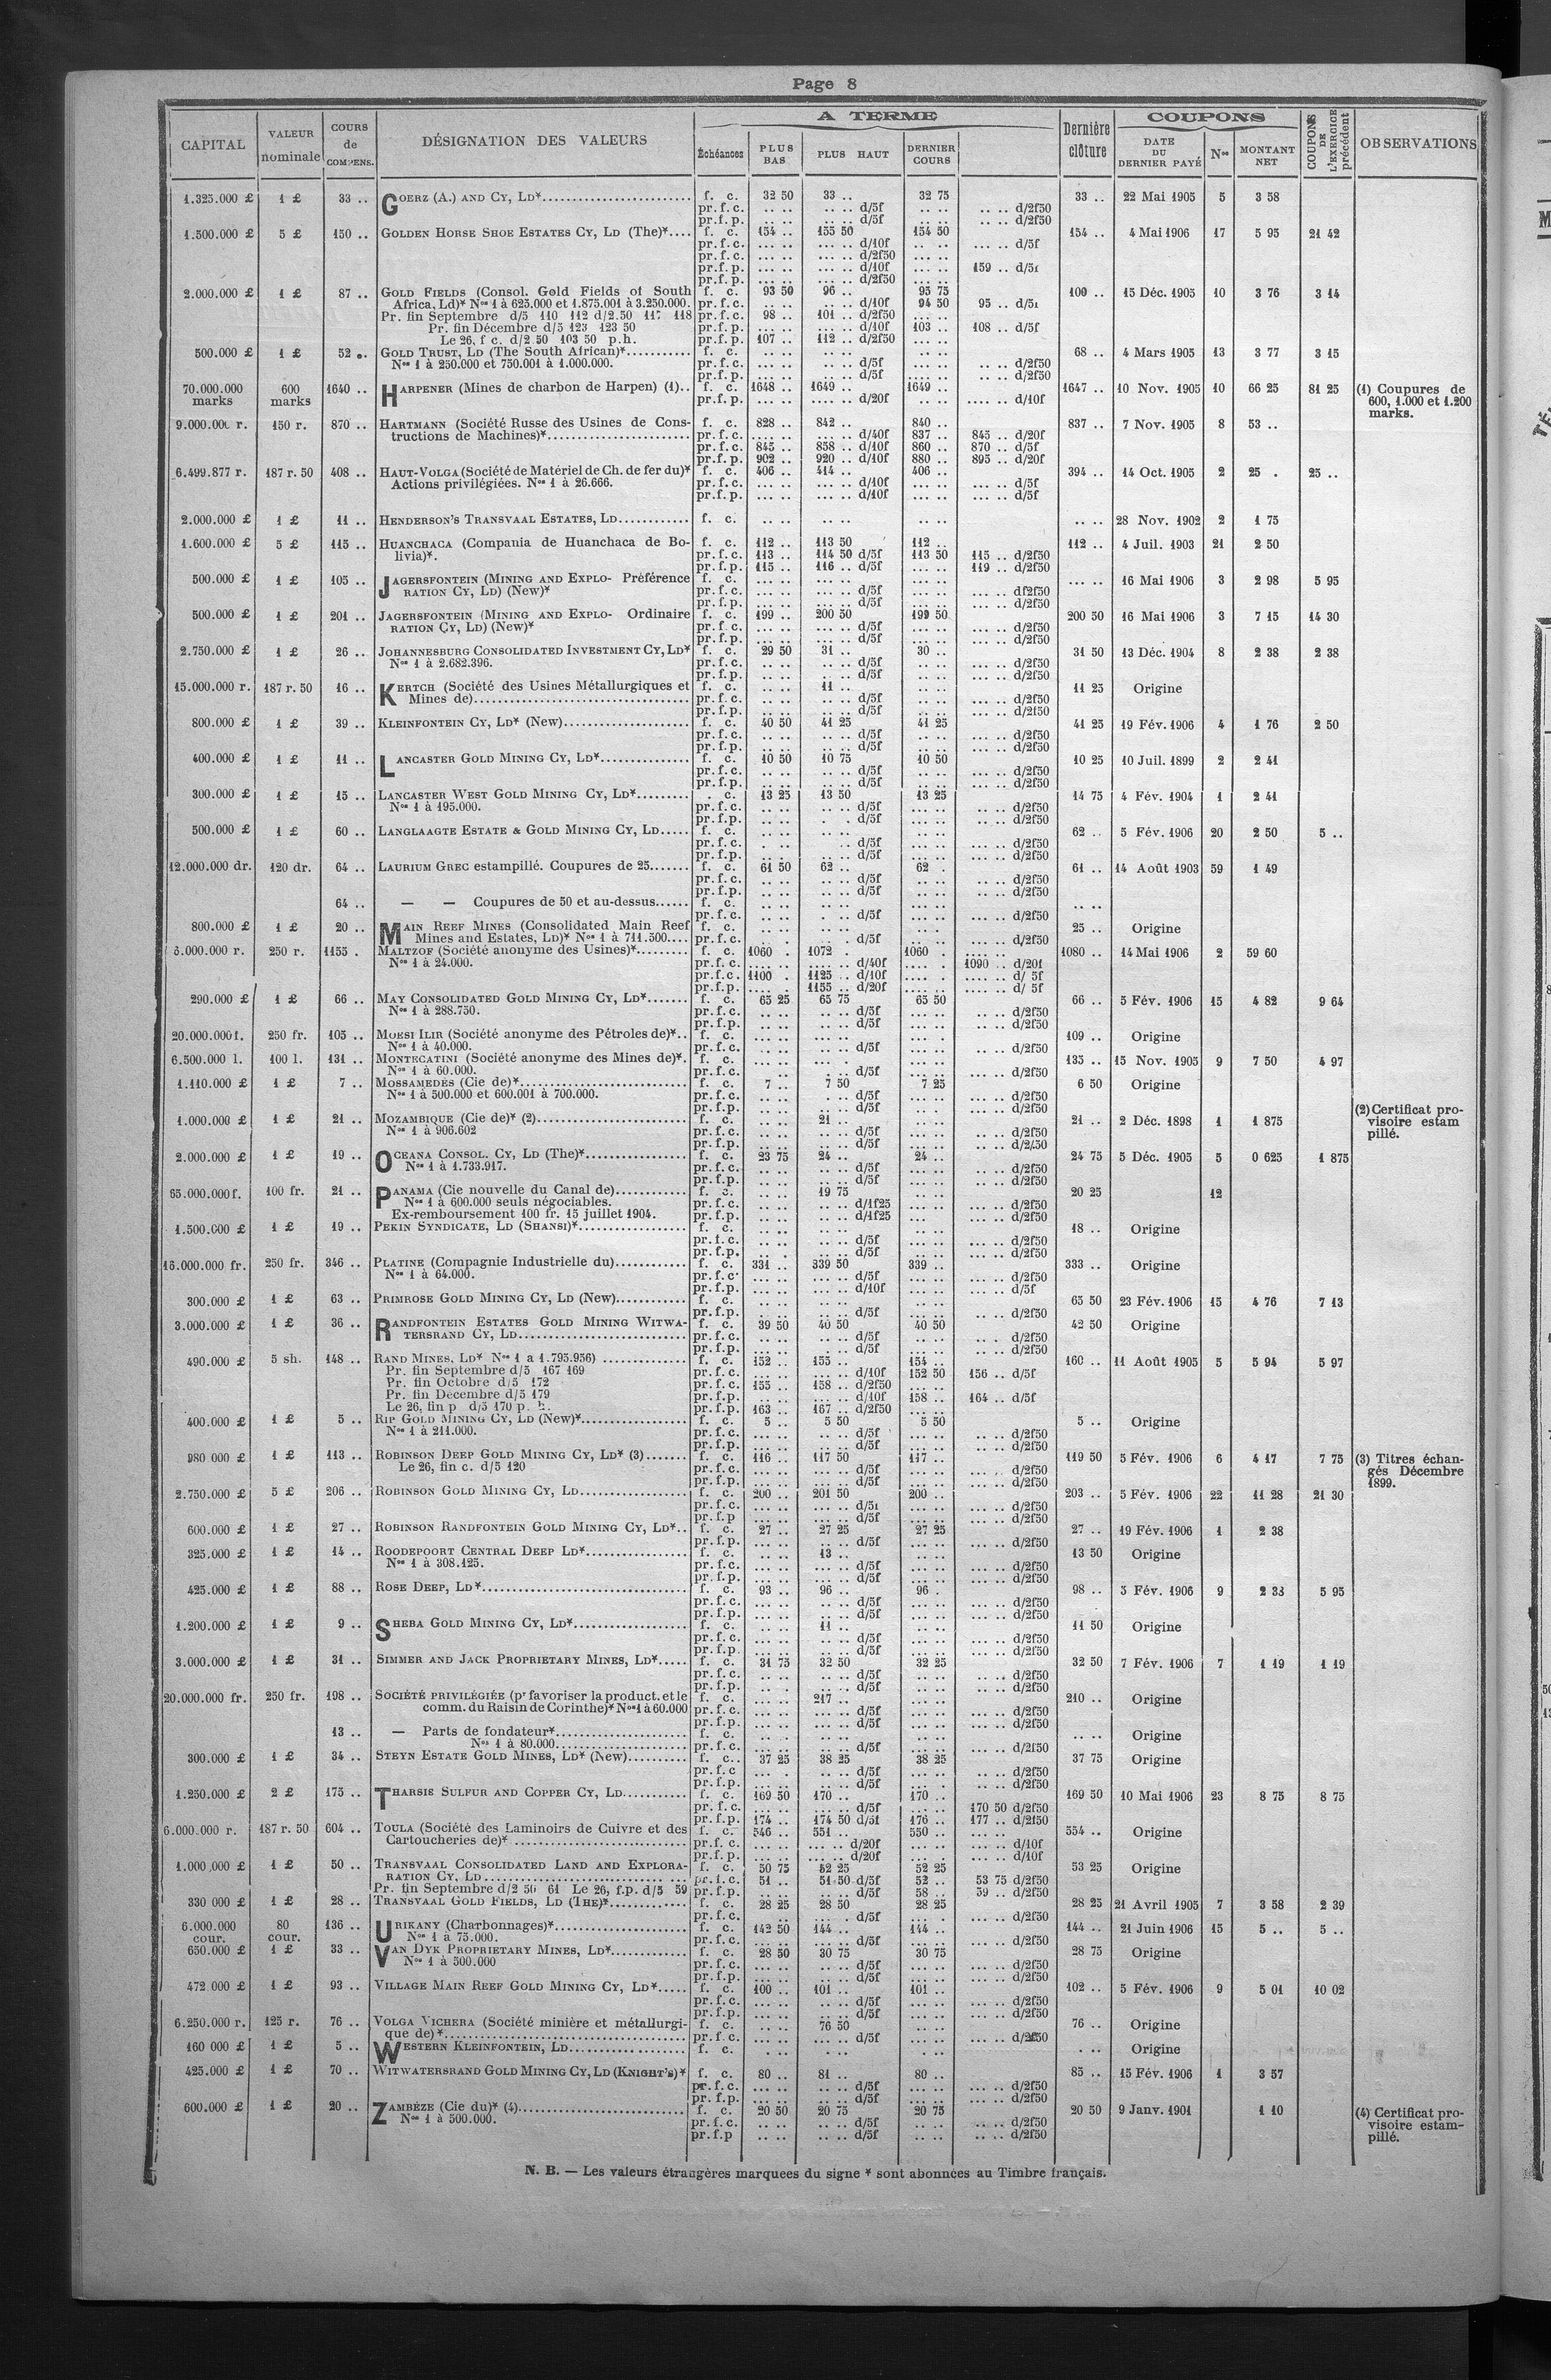 Page 8
CAPITAL VALEUR nominale COURS de COMPENS. DÉSIGNATION DES VALEURS A TERME Dernière clôture COUPONS COUPONS DE L'EXERCICE précédent OBSERVATIONS
Échéances PLUS BAS PLUS HAUT DERNIER COURS DATE DU DERNIER PAYÉ Nos MONTANT NET
1.325.000 £ 1 £ 33 .. GOERZ (A.) AND CY, LD* f. c. 32 50 33 .. 32 75 33 .. 22 Mai 1905 5 3 58
pr. f. c. .. .. .. .. d/5f .. .. .. .. d/2f50
pr. f. p. .. .. .. .. d/5f .. .. .. .. d/2f50
1.500.000 £ 5 £ 150 .. GOLDEN HORSE SHOE ESTATES CY, LD (The)* f. c. 154 .. 155 50 154 50 154 .. 4 Mai 1906 17 5 95 21 42
pr. f. c. ... .. ... .. d/10f .. .. ... .. d/5f
pr. f. c. ... .. ... .. d/2f50 ... ..
pr. f. p. ... .. ... .. d/10f ... .. 159 ..
pr. f. p. ... .. ... .. d/2f50
2.000.000 £ 1 £ 87 .. GOLD FIELDS (Consol. Gold Fields of South f. c. 93 50 96 .. 95 75 100 .. 15 Déc. 1905 10 3 76 3 14
Africa, Ld)* Nos 1 à 625.000 et 1.875.001 à 3.250.000. pr. f. c. .. .. .. .. d/10f 94 50 95 ..
Pr. fin Septembre d/5 110 112 d/2.50 117 118 pr. f. c. 98 .. 101 .. d/2f50 ... ..
Pr. fin Décembre d/5 123 123 50 pr. f. p. ... .. ... .. d/10f 103 .. 108 .. d/5f
Le 26, f c. d/2 50 103 50 p.h. pr. f. p. 107 .. 112 .. d/2f50 ... ..
500.000 £ 1 £ 52 .. GOLD TRUST, LD (The South African)* f. c. .. .. .. .. .. .. 68 .. 4 Mars 1905 13 3 77 3 15
Nos 1 à 250.000 et 750.001 à 1.000.000. pr. f. c. .. .. .. .. d/5f .. .. d/2f50
pr. f. p. .. .. .. .. d/5f .. .. .. .. d/2f50
70.000.000 marks 600 marks 1640 .. HARPENER (Mines de charbon de Harpen) (1) f. c. 1648 .. 1649 .. 1649 .. 1647 .. 10 Nov. 1905 10 66 25 81 25 (1) Coupures de
600, 1.000 et 1.200
pr. f. p. .... .. .... .. d/20f .. .. .... .. d/10f
marks.
9.000.000 r. 150 r. 870 .. HARTMANN (Société Russe des Usines de Cons- f. c. 828 .. 842 840 .. 837 .. 7 Nov. 1905 8 53 ..
tructions de Machines)* pr. f. c. ... .. ... .. d/40f 837 .. 845 .. d/20f
pr. f. c. 845 .. 858 .. d/10f 860 .. 870 .. d/5f
pr. f. p. 902 .. 920 .. d/10f 880 .. 895 .. d/20f
6.499.877 r. 187 r. 50 408 .. HAUT-VOLGA (Société de Matériel de Ch. de fer du)* f. c. 406 .. 414 .. 406 .. 394 .. 14 Oct. 1905 2 25 . 25 ..
Actions privilégiées. Nos 1 à 26.666. pr. f. c. ... .. ... .. d/10f ... .. ... .. d/5f
pr. f. p. ... .. ... .. d/10f ... .. ... .. d/5f
2.000.000 £ 1 £ 11 .. HENDERSON'S TRANSVAAL ESTATES, LD f. c. .. .. .. .. .. .. .. .. 28 Nov. 1902 2 1 75
1.600.000 £ 5 £ 115 .. HUANCHACA (Compania de Huanchaca de Bo- f. c. 112 .. 113 50 112 .. 112 .. 4 Juil. 1903 21 2 50
livia)*. pr. f. c. 113 .. 114 50 d/5f 113 50 115 .. d/2f50
pr. f. p. 115 .. 116 .. d/5f ... .. 119 .. d/2f50
500.000 £ 1 £ 105 .. JAGERSFONTEIN (MINING AND EXPLO- Préférence f. c. ... .. ... .. ... .. ... .. 16 Mai 1906 3 2 98 5 95
RATION CY, LD) (New)* pr. f. c. ... .. ... .. d/5f ... .. ... .. df2f50
pr. f. p. ... .. ... .. d/5f ... .. ... .. d/2f50
500.000 £ 1 £ 201 .. JAGERSFONTEIN (MINING AND EXPLO- Ordinaire f. c. 199 .. 200 50 199 50 200 50 16 Mai 1906 3 7 15 14 30
RATION CY, LD) (New)* pr. f. c. ... .. ... .. d/5f ... .. ... .. d/2f50
pr. f. p. ... .. ... .. d/5f ... .. ... .. d/2f50
2.750.000 £ 1 £ 26 .. JOHANNESBURG CONSOLIDATED INVESTMENT CY, LD* f. c. 29 50 31 .. 30 .. 31 50 13 Déc. 1904 8 2 38 2 38
Nos 1 à 2.682.396. pr. f. c. .. .. .. .. d/5f .. .. ... .. d/2f50
pr. f. p. .. .. .. .. d/5f .. .. ... .. d/2f50
15.000.000 r. 187 r. 50 16 .. KERTCH (Société des Usines Métallurgiques et f. c. .. .. 11 .. .. .. 11 25 Origine
Mines de) pr. f. c. .. .. .. .. d/5f .. .. ... .. d/2f50
pr. f. p. .. .. .. .. d/5f .. .. .. .. d/2f50
800.000 £ 1 £ 39 .. KLEINFONTEIN CY, LD* (New) f. c. 40 50 41 25 41 25 41 25 19 Fév. 1906 4 1 76 2 50
pr. f. c. .. .. .. .. d/5f .. .. ... .. d/2f50
pr. f. p. .. .. .. .. d/5f .. .. ... .. d/2f50
400.000 £ 1 £ 11 .. LANCASTER GOLD MINING CY, LD* f. c. 10 50 10 75 10 50 10 25 10 Juil. 1899 2 2 41
pr. f. c. .. .. .. .. d/5f .. .. ... .. d/2f50
pr. f. p. .. .. .. .. d/5f .. .. ... .. d/2f50
300.000 £ 1 £ 15 .. LANCASTER WEST GOLD MINING CY, LD* . c. 13 25 13 50 13 25 14 75 4 Fév. 1904 1 2 41
Nos 1 à 195.000. pr. f. c. .. .. .. .. d/5f .. .. .. .. d/2f50
pr. f. p. .. .. . . d/5f .. .. .. .. d/2f50
500.000 £ 1 £ 60 .. LANGLAAGTE ESTATE & GOLD MINING CY, LD f. c. .. .. .. .. .. .. 62 .. 5 Fév. 1906 20 2 50 5 ..
pr. f. c. . .. .. .. d/5f .. .. .. .. d/2f50
pr. f. p. .. .. .. .. d/5f .. .. .. .. d/2f50
12.000.000 dr. 120 dr. 64 .. LAURIUM GREC estampillé. Coupures de 25 f. c. 61 50 62 .. 62 . 61 .. 14 Août 1903 59 1 49
pr. f. c. .. .. .. .. d/5f .. .. .. .. d/2f50
pr. f. p. .. .. .. .. d/5f .. .. .. .. d/2f50
64 .. — — Coupures de 50 et au-dessus f. c. .. .. .. .. .. .. .. ..
pr. f. c. .. .. . .. d/5f .. .. .. .. d/2f50
800.000 £ 1 £ 20 .. MAIN REEF MINES (Consolidated Main Reef f. c. .. .. .. .. .. . 25 .. Origine
Mines and Estates, LD)* Nos 1 à 711.500 pr. f. c. .. . .. . d/5f .. .. .. .. d/2f50
6.000.000 r. 250 r. 1155 . MALTZOF (Société anonyme des Usines)* f. c. 1060 . 1072 . 1060 . 1080 .. 14 Mai 1906 2 59 60
Nos 1 à 24.000. pr. f. c. .... .. .... .. d/40f .... . 1090 .. d/20f
pr. f. c. 1100 . 1125 .. d/10f .... .. .... .. d/ 5f
pr. f. p. .... . 1155 .. d/20f .... .. .... .. d/ 5f
290.000 £ 1 £ 66 .. MAY CONSOLIDATED GOLD MINING CY, LD* f. c. 65 25 65 75 65 50 66 .. 5 Fév. 1906 15 4 82 9 64
Nos 1 à 288.750. pr. f. c. .. .. .. .. d/5f .. .. .. .. d/2f50
pr. f. p. .. .. .. .. d/5f .. .. .. .. d/2f50
20.000.000 f. 250 fr. 105 .. MORSI ILIR (Société anonyme des Pétroles de)* f. c. ... .. ... .. ... . 109 .. Origine
Nos 1 à 40.000. pr. f. c. .. .. .. .. d/5f .. .. .. .. d/2f50
6.500.000 l. 100 l. 131 .. MONTECATINI (Société anonyme des Mines de)*. f. c. ... .. ... . ... .. 135 .. 15 Nov. 1905 9 7 50 4 97
Nos 1 à 60.000. pr. f. c. .. . .. .. d/5f .. .. .. .. d/2f50
1.110.000 £ 1 £ 7 .. MOSSAMEDES (Cie de)* f. c. 7 .. 7 50 7 25 6 50 Origine
Nos 1 à 500.000 et 600.001 à 700.000. pr. f. c. .. .. . .. d/5f .. .. .. .. d/2f50
pr. f. p. .. .. .. .. d/5f .. . .. .. d/2f50
1.000.000 £ 1 £ 21 .. MOZAMBIQUE (Cie de)* (2) f. c. .. .. 21 .. .. .. 21 .. 2 Déc. 1898 1 1 875 (2) Certificat pro-
visoire estam
Nos 1 à 906.602 pr. f. c. .. .. .. .. d/5f .. .. .. .. d/2f50
pillé.
pr. f. p. .. .. .. .. d/5f .. .. .. .. d/2f50
2.000.000 £ 1 £ 19 .. OCEANA CONSOL. CY, LD (The)* f. c. 23 75 24 .. 24 .. 24 75 5 Déc. 1905 5 0 625 1 875
Nos 1 à 1.733.917. pr. f. c. .. .. .. .. d/5f .. .. ... .. d/2f50
pr. f. p. .. .. .. .. d/5f .. .. ... .. d/2f50
65.000.000 f. 100 fr. 21 .. PANAMA (Cie nouvelle du Canal de) f. c. .. .. 19 75 .. .. 20 25 12
Nos 1 à 600.000 seuls négociables. pr. f. c. .. .. .. .. d/1f25 .. .. ... .. d/2f50
Ex-remboursement 100 fr. 15 juillet 1904. pr. f. p. .. .. .. .. d/1f25 ... ... .. d/2f50
1.500.000 £ 1 £ 19 .. PEKIN SYNDICATE, LD (SHANSI)* f. c. .. .. .. .. .. .. 18 .. Origine
pr. f. c. .. .. .. .. d/5f .. .. ... .. d/2f50
pr. f. p. .. . .. .. d/5f .. .. ... .. d/2f50
16.000.000 fr. 250 fr. 346 .. PLATINE (Compagnie Industrielle du) f. c. 331 .. 339 50 339 .. 333 .. Origine
Nos 1 à 64.000. pr. f. c. ... .. ... .. d/5f ... .. ... .. d/2f50
pr. f. p. ... .. ... .. d/10f ... .. ... .. d/5f
300.000 £ 1 £ 63 .. PRIMROSE GOLD MINING CY, LD (New) f. c. .. .. .. .. .. .. 65 50 23 Fév. 1906 15 4 76 7 13
pr. f. p. .. .. .. .. d/5f .. .. ... .. d/2f50
3.000.000 £ 1 £ 36 .. RANDFONTEIN ESTATES GOLD MINING WITWA- f. c. 39 50 40 50 40 50 42 50 Origine
TERSRAND CY, LD pr. f. c. .. .. .. .. d/5f .. .. .. . d/2f50
pr. f. p. .. .. .. .. d/5f .. .. .. .. d/2f50
490.000 £ 5 sh. 148 .. RAND MINES, LD* Nos 1 a 1.795.956) f. c. 152 .. 155 .. 154 .. 160 .. 11 Août 1905 5 5 94 5 97
Pr. fin Septembre d/5 167 169 pr. f. c. ... .. ... .. d/10f 152 50 156 .. d/5f
Pr. fin Octobre d/5 172 pr. f. c. 155 .. 158 .. d/2f50 ... ..
Pr. fin Décembre d/5 179 pr. f. p. .. .. ... .. d/10f 158 .. 164 .. d/5f
Le 26, fin p d/5 170 p. h. pr. f. p. 163 .. 167 .. d/2f50 ... ..
400.000 £ 1 £ 5 .. RIP GOLD MINING CY, LD (New)* f. c. 5 .. 5 50 5 50 5 .. Origine
Nos 1 à 211.000. pr. f. c. ... .. .. .. d/5f ... .. .. .. d/2f50
pr. f. p. ... .. .. .. d/5f ... .. ... .. d/2f50
980 000 £ 1 £ 113 .. ROBINSON DEEP GOLD MINING CY, LD* (3) f. c. 116 .. 117 50 117 .. 119 50 5 Fév. 1906 6 4 17 7 75 (3) Titres échan-
Le 26, fin c. d/5 120 pr. f. c. ... .. ... .. d/5f ... .. ... .. d/2f50 gés Décembre
pr. f. p. ... .. ... .. d/5f ... .. ... .. d/2f50 1899.
2.750.000 £ 5 £ 206 .. ROBINSON GOLD MINING CY, LD f. c. 200 .. 201 50 200 .. 203 .. 5 Fév. 1906 22 11 28 21 30
pr. f. c. ... .. ... .. ... .. ... .. d/2f50
pr. f. p ... .. ... .. d/5f ... .. ... .. d/2f50
600.000 £ 1 £ 27 .. ROBINSON RANDFONTEIN GOLD MINING CY, LD* f. c. 27 .. 27 25 27 25 27 .. 19 Fév. 1906 1 2 38
pr. f. p. ... .. .. .. d/5f
325.000 £ 1 £ 14 .. ROODEPOORT CENTRAL DEEP LD* f. c. .. .. 13 .. .. .. 13 50 Origine
Nos 1 à 308.125. pr. f. c. ... .. ... .. d/5f ... .. ... .. d/2f50
pr. f. p. ... .. ... .. d/5f ... .. ... .. d/2f50
425.000 £ 1 £ 88 .. ROSE DEEP, LD* f. c. 93 .. 96 .. 96 . 98 .. 5 Fév. 1906 9 2 33 5 95
pr. f. c. ... .. .. .. d/5f ... .. ... .. d/2f50
pr. f. p. ... .. .. .. d/5f ... .. ... .. d/2f50
1.200.000 £ 1 £ 9 .. SHEBA GOLD MINING CY, LD* f. c. ... .. 11 .. ... .. 11 50 Origine
pr. f. c. ... .. ... .. d/5f ... .. ... .. d/2f50
pr. f. p. ... .. .. .. d/5f ... .. ... .. d/2f50
3.000.000 £ 1 £ 31 .. SIMMER AND JACK PROPRIETARY MINES, LD* f. c. 31 75 32 50 32 25 32 50 7 Fév. 1906 7 1 19 1 19
pr. f. c. .. .. .. .. d/5f .. .. .. .. d/2f50
pr. f. p. .. .. . .. d/5f .. .. .. .. d/2f50
20.000.000 fr. 250 fr. 198 .. SOCIÉTÉ PRIVILÉGIÉE (pr favoriser la product. et le f. c. ... .. 217 .. ... .. 210 .. Origine
comm. du Raisin de Corinthe)* Nos 1 à 60.000 pr. f. c. ... .. ... .. d/5f ... .. ... .. d/2f50
pr. f. p. ... .. ... .. d/5f ... .. ... .. d/2f50
13 .. — Parts de fondateur* f. c. ... .. .. .. ... .. .. .. Origine
Nos 1 à 80.000 pr. f. c. ... .. .. .. d/5f ... .. ... .. d/2f50
300.000 £ 1 £ 34 .. STEYN ESTATE GOLD MINES, LD* (New) f. c. 37 25 38 25 38 25 37 75 Origine
pr. f. c ... . .. .. d/5f ... .. .. .. d/2f50
pr. f. p. ... .. .. .. d/5f ... . .. .. d/2f50
1.250.000 £ 2 £ 175 .. THARSIS SULFUR AND COPPER CY, LD f. c. 169 50 170 .. 170 .. 169 50 10 Mai 1906 23 8 75 8 75
pr. f. c. ... .. ... .. d/5f ... .. 170 50 d/2f50
pr. f. p. 174 .. 174 50 d/5f 176 .. 177 .. d/2f50
6.000.000 r. 187 r. 50 604 .. TOULA (Société des Laminoirs de Cuivre et des f. c. 546 .. 551 .. 550 .. 554 .. Origine
Cartoucheries de)* pr. f. c. ... .. ... .. d/20f ... .. ... .. d/10f
pr. f. p. ... .. ... .. d/20f ... .. ... . d/10f
1.000,000 £ 1 £ 50 .. TRANSVAAL CONSOLIDATED LAND AND EXPLORA- f. c. 50 75 52 25 52 25 53 25 Origine
RATION CY, LD pr. f. c. 51 .. 51 50 d/5f 52 .. 53 75 d/2f50
Pr. fin Septembre d/2 50 61 Le 26, f.p. d/5 59 pr. f. p. .. .. .. .. d/5f 58 .. 59 .. d/2f50
330 000 £ 1 £ 28 .. TRANSVAAL GOLD FIELDS, LD (THE)* f. c. 28 25 28 50 28 25 28 25 21 Avril 1905 7 3 58 2 39
pr. f. c. .. .. .. . d/5f ... . .. .. d/2f50
6.000.000 cour. 80 cour. 136 .. URIKANY (Charbonnages)* f. c. 142 50 144 .. 144 .. 144 .. 21 Juin 1906 15 5 .. 5 ..
Nos 1 à 75.000. pr. f. c. ... .. ... .. d/5f ... .. ... .. d/2f50
650.000 £ 1 £ 33 .. VAN DYK PROPRIETARY MINES, LD* f. c. 28 50 30 75 30 75 28 75 Origine
Nos 1 à 500.000 pr. f. c. ... .. .. .. d/5f ... .. ... .. d/2f50
pr. f. p. ... .. .. .. d/5f ... .. ... .. d/2f50
472.000 £ 1 £ 93 .. VILLAGE MAIN REEF GOLD MINING CY, LD* f. c. 100 .. 101 .. 101 .. 102 .. 5 Fév. 1906 9 5 01 10 02
pr. f. c. ... .. .. .. d/5f ... .. ... .. d/2f50
pr. f. p. ... .. .. .. d/5f ... .. ... .. d/2f50
6.250.000 r. 125 r. 76 .. VOLGA VICHERA (Société minière et métallurgi- f. c. .. .. 76 50 .. .. 76 .. Origine
que de)* pr. f. c. ... .. ... .. d/5f ... .. ... .. d/2f50
160 000 £ 1 £ 5 .. WESTERN KLEINFONTEIN, LD f. c. . .. .. .. .. .. . .. Origine
425.000 £ 1 £ 70 .. WITWATERSRAND GOLD MINING CY, LD (KNIGHT'S)* f. c. 80 .. 81 .. 80 .. 85 .. 15 Fév. 1906 1 3 57
pr. f. c. ... .. .. .. d/5f ... .. ... .. d/2f50
pr. f. p. ... .. .. .. d/5f ... .. ... .. d/2f50
600.000 £ 1 £ 20 .. ZAMBÈZE (Cie du)* (4) f. c. 20 50 20 75 20 75 20 50 9 Janv. 1901 1 10 (4) Certificat pro-
Nos 1 à 500.000. pr. f. c. .. .. .. .. d/5f .. .. .. .. d/2f50 visoire estam-
pr. f. p .. .. .. .. d/5f .. .. .. .. d/2f50 pillé.
N. B. — Les valeurs étrangères marquees du signe * sont abonnées au Timbre français.